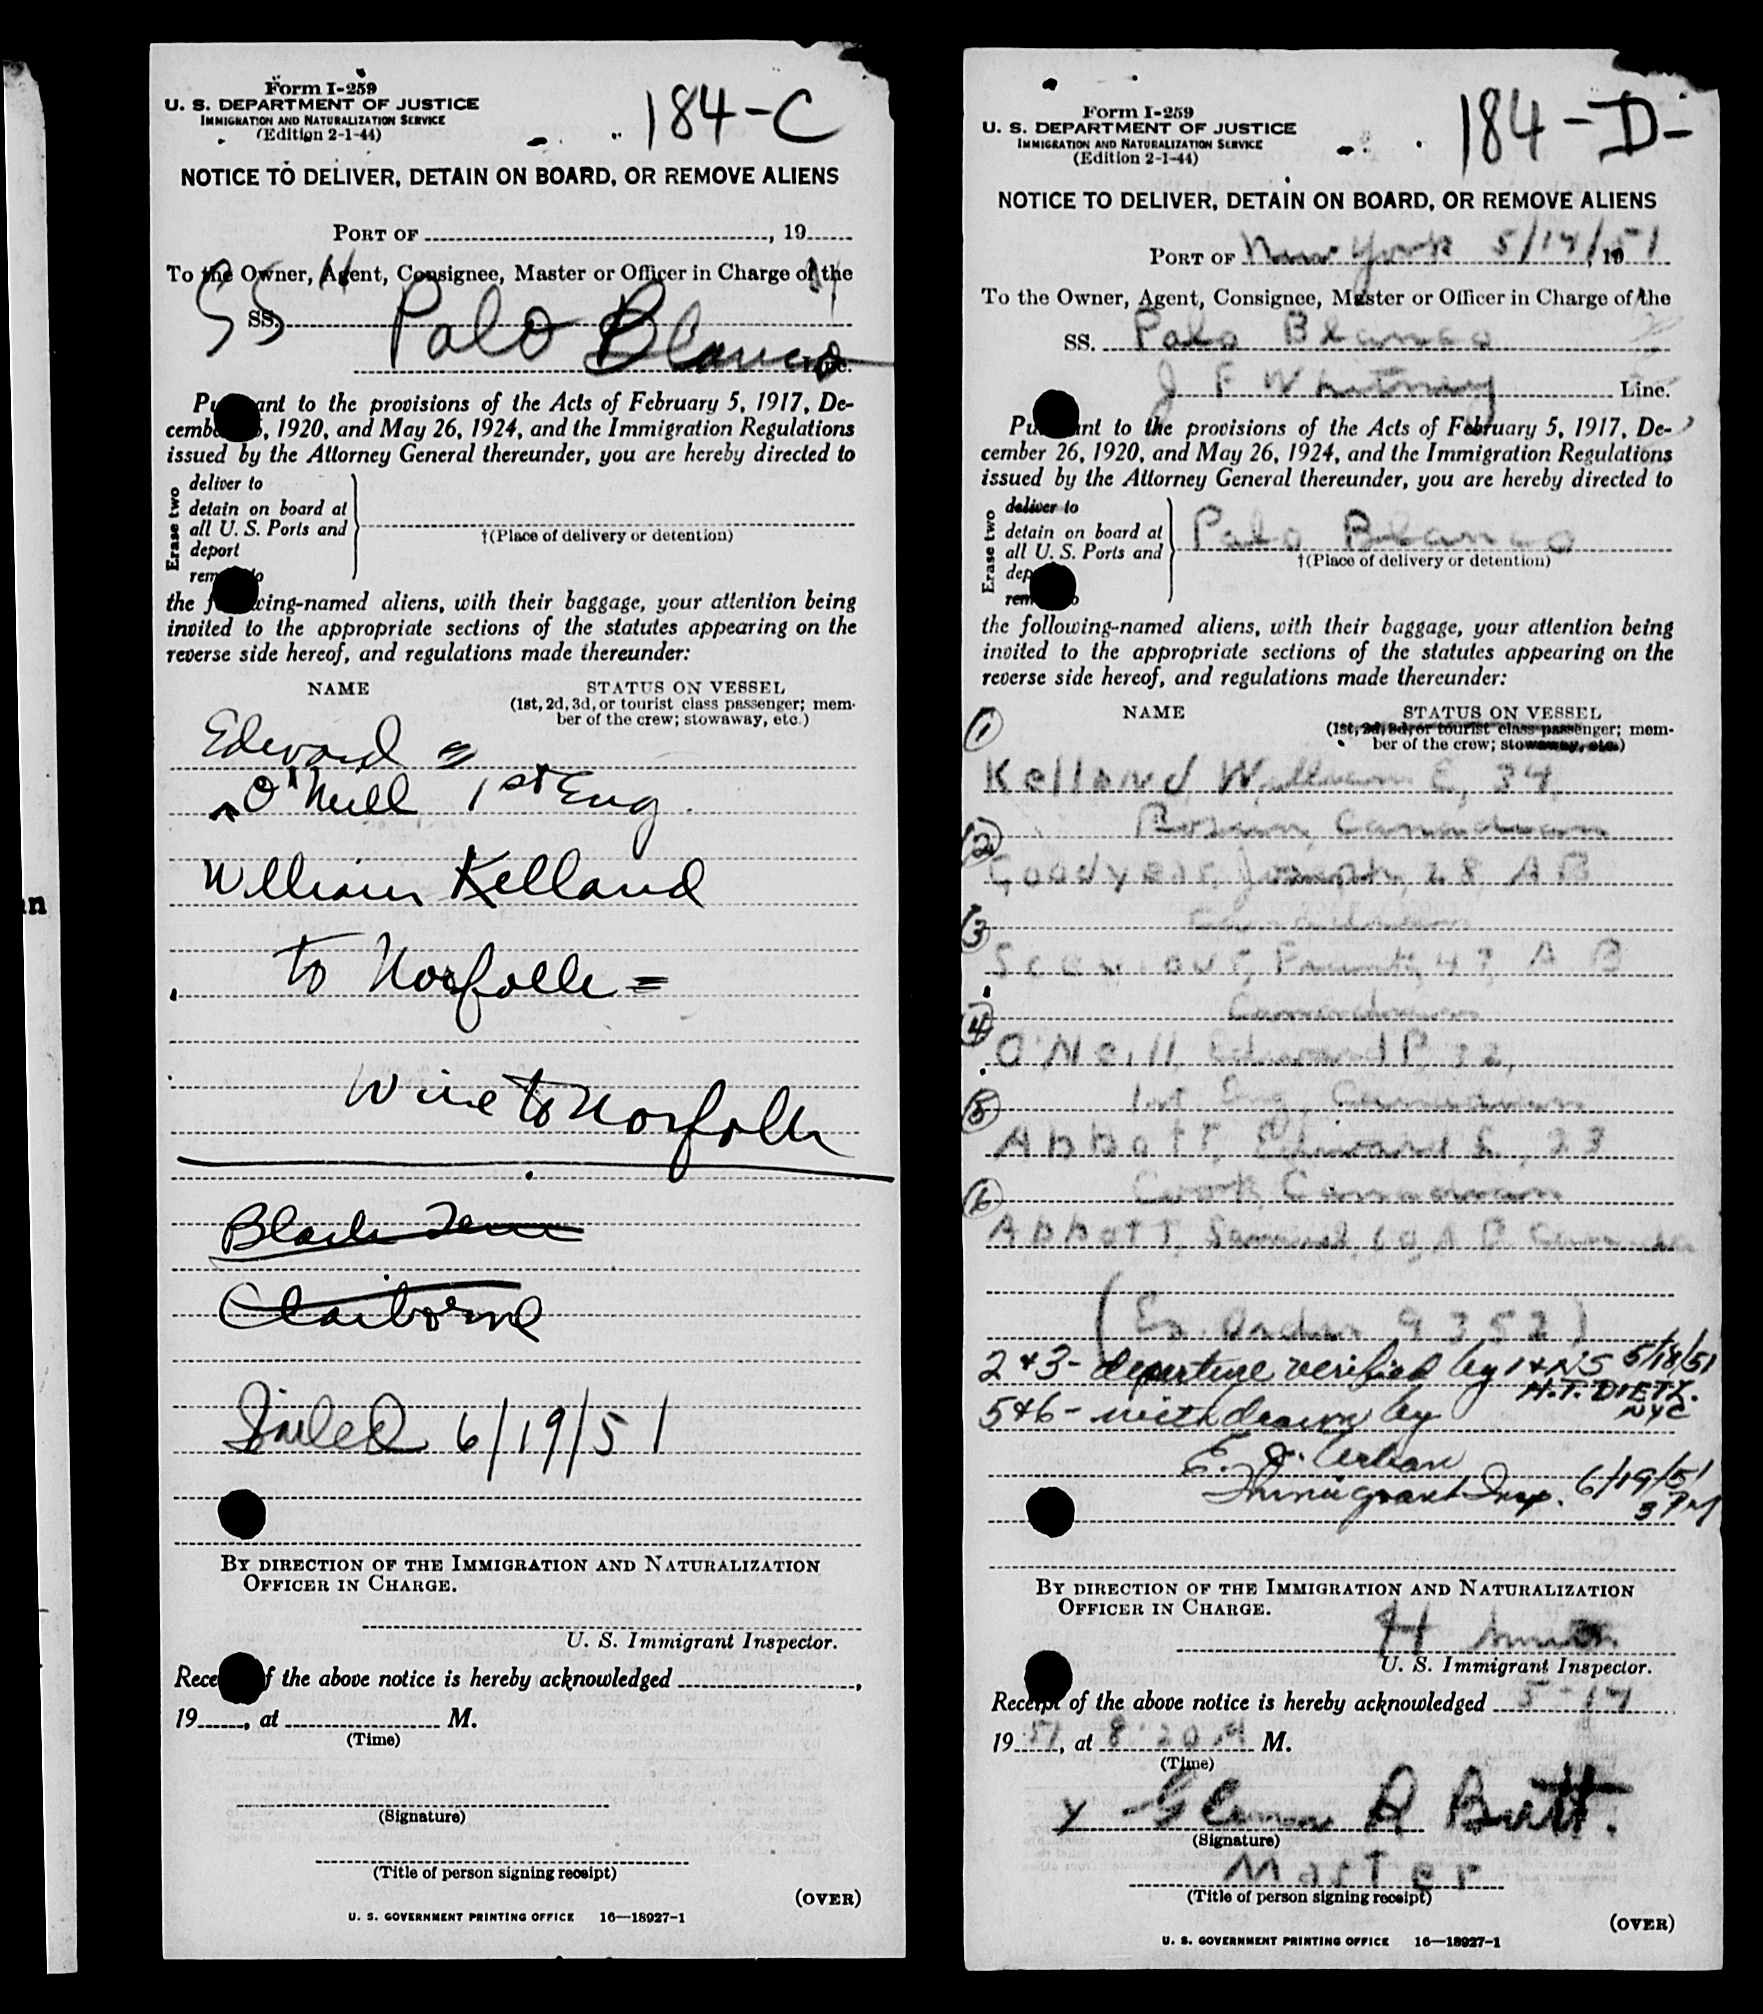 n
Form I-259
U. S. DEPARTMENT OF JUSTICE
IMMIGRATION AND NATURALIZATION SERVICE
(Edition 2-1-44)
184-C
NOTICE TO DELIVER, DETAIN ON BOARD, OR REMOVE ALIENS
PORT OF , 19
To the Owner, Agent, Consignee, Master or Officer in Charge of the
SS SS. Palo Blanco
Line.
Pu ant to the provisions of the Acts of February 5, 1917, De-
cemb , 1920, and May 26, 1924, and the Immigration Regulations
issued by the Attorney General thereunder, you are hereby directed to
Erase two
deliver to
detain on board at
all U. S. Ports and
deport
rem o
†(Place of delivery or detention)
the f wing-named aliens, with their baggage, your attention being
invited to the appropriate sections of the statutes appearing on the
reverse side hereof, and regulations made thereunder:
NAME STATUS ON VESSEL
(1st, 2d, 3d, or tourist class passenger; mem-
ber of the crew; stowaway, etc.)
Edward
O'Neill 1st Eng.
William Kelland
to Norfolk =
Wire to Norfolk
Black
Claiborne
Sailed 6/19/51
BY DIRECTION OF THE IMMIGRATION AND NATURALIZATION
OFFICER IN CHARGE.
U. S. Immigrant Inspector.
Rece f the above notice is hereby acknowledged ,
19 , at M.
(Time)
(Signature)
(Title of person signing receipt)
(OVER)
U. S. GOVERNMENT PRINTING OFFICE 16—18927-1
Form I-259
U. S. DEPARTMENT OF JUSTICE
IMMIGRATION AND NATURALIZATION SERVICE
(Edition 2-1-44)
184-D-
NOTICE TO DELIVER, DETAIN ON BOARD, OR REMOVE ALIENS
PORT OF New York 5/17/, 1951
To the Owner, Agent, Consignee, Master or Officer in Charge of the
SS. Palo Blanco
J F Whitney Line.
Pu ant to the provisions of the Acts of February 5, 1917, De-
cember 26, 1920, and May 26, 1924, and the Immigration Regulations
issued by the Attorney General thereunder, you are hereby directed to
Erase two
deliver to
detain on board at
all U. S. Ports and
dep
rem o
Palo Blanco
†(Place of delivery or detention)
the following-named aliens, with their baggage, your attention being
invited to the appropriate sections of the statutes appearing on the
reverse side hereof, and regulations made thereunder:
NAME STATUS ON VESSEL
(1st, 2d, 3d, or tourist class passenger; mem-
ber of the crew; stowaway, etc.)
(1)
Kelland William E, 34
Bosun, Canadian
(2)
Goodyear, Joseph, 28, AB
Canadian
(3)
47, AB
Canadian
(4)
O'Neill Edward P, 32,
1st Eng, Canadian
(5)
Abbott, Edward S, 23
Cook, Canadian
(6)
Abbott, Samuel, 60, AB Canada
(Ex. Order 9352)
2 & 3 - departure verified by I & NS 5/18/51
H.T. DIETZ.
NYC
5 & 6 - withdrawn by
E. J. Urban
Immigrant Insp. 6/19/51
3 PM
BY DIRECTION OF THE IMMIGRATION AND NATURALIZATION
OFFICER IN CHARGE.
H
U. S. Immigrant Inspector.
Receipt of the above notice is hereby acknowledged 5-17
1951, at 8:20 A M.
(Time)
Glenn A Butt.
(Signature)
Master
(Title of person signing receipt)
(OVER)
U. S. GOVERNMENT PRINTING OFFICE 16—18927-1